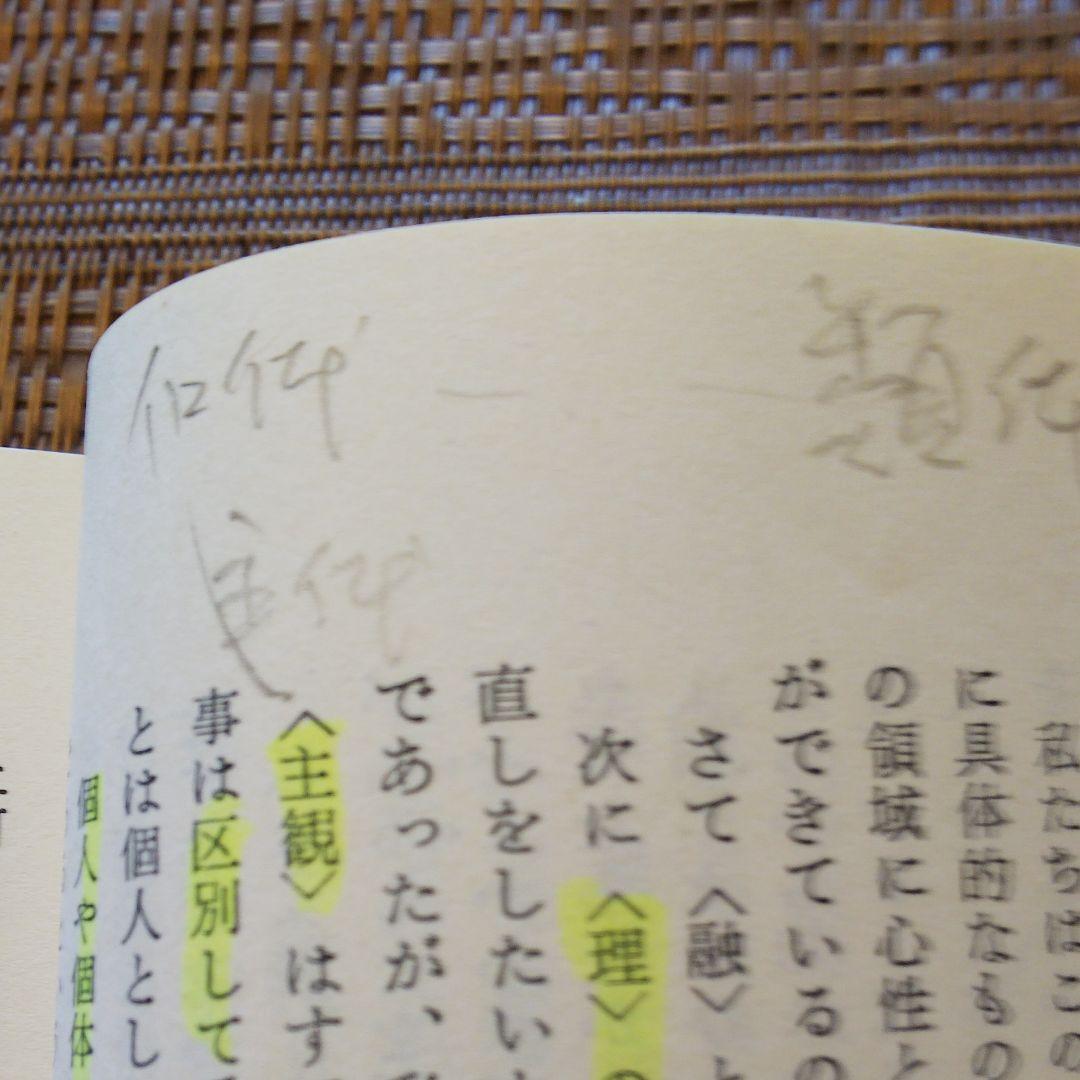 類
私たちはこの
に具体的なもの
の領域に心性と
ができているの
さて〈融〉と
次に〈理〉の
直しをしたい
であったが、
〈主観〉はす
事は区別して
とは個人とし
個人や個体